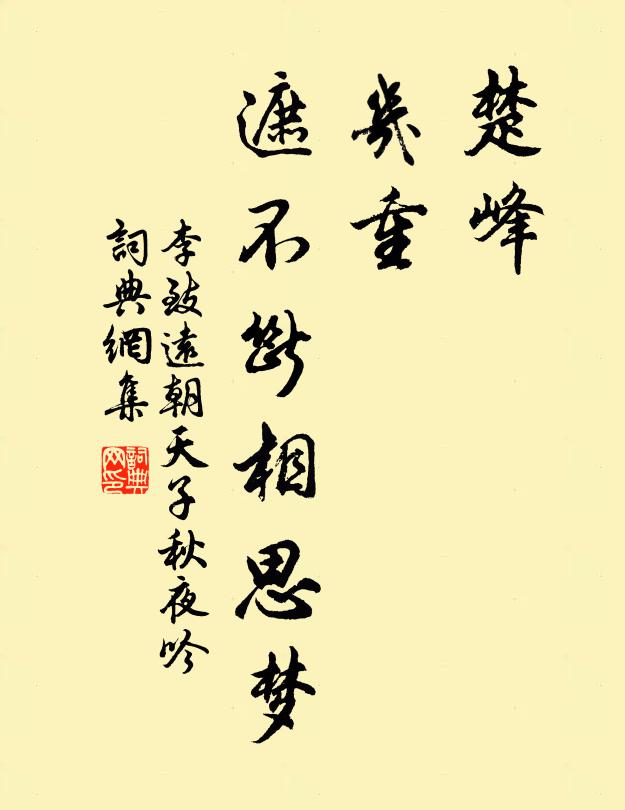 楚峰
幾重
遮不斷相思梦
李致遠朝天子秋夜吟
詞典網集
詞典网印